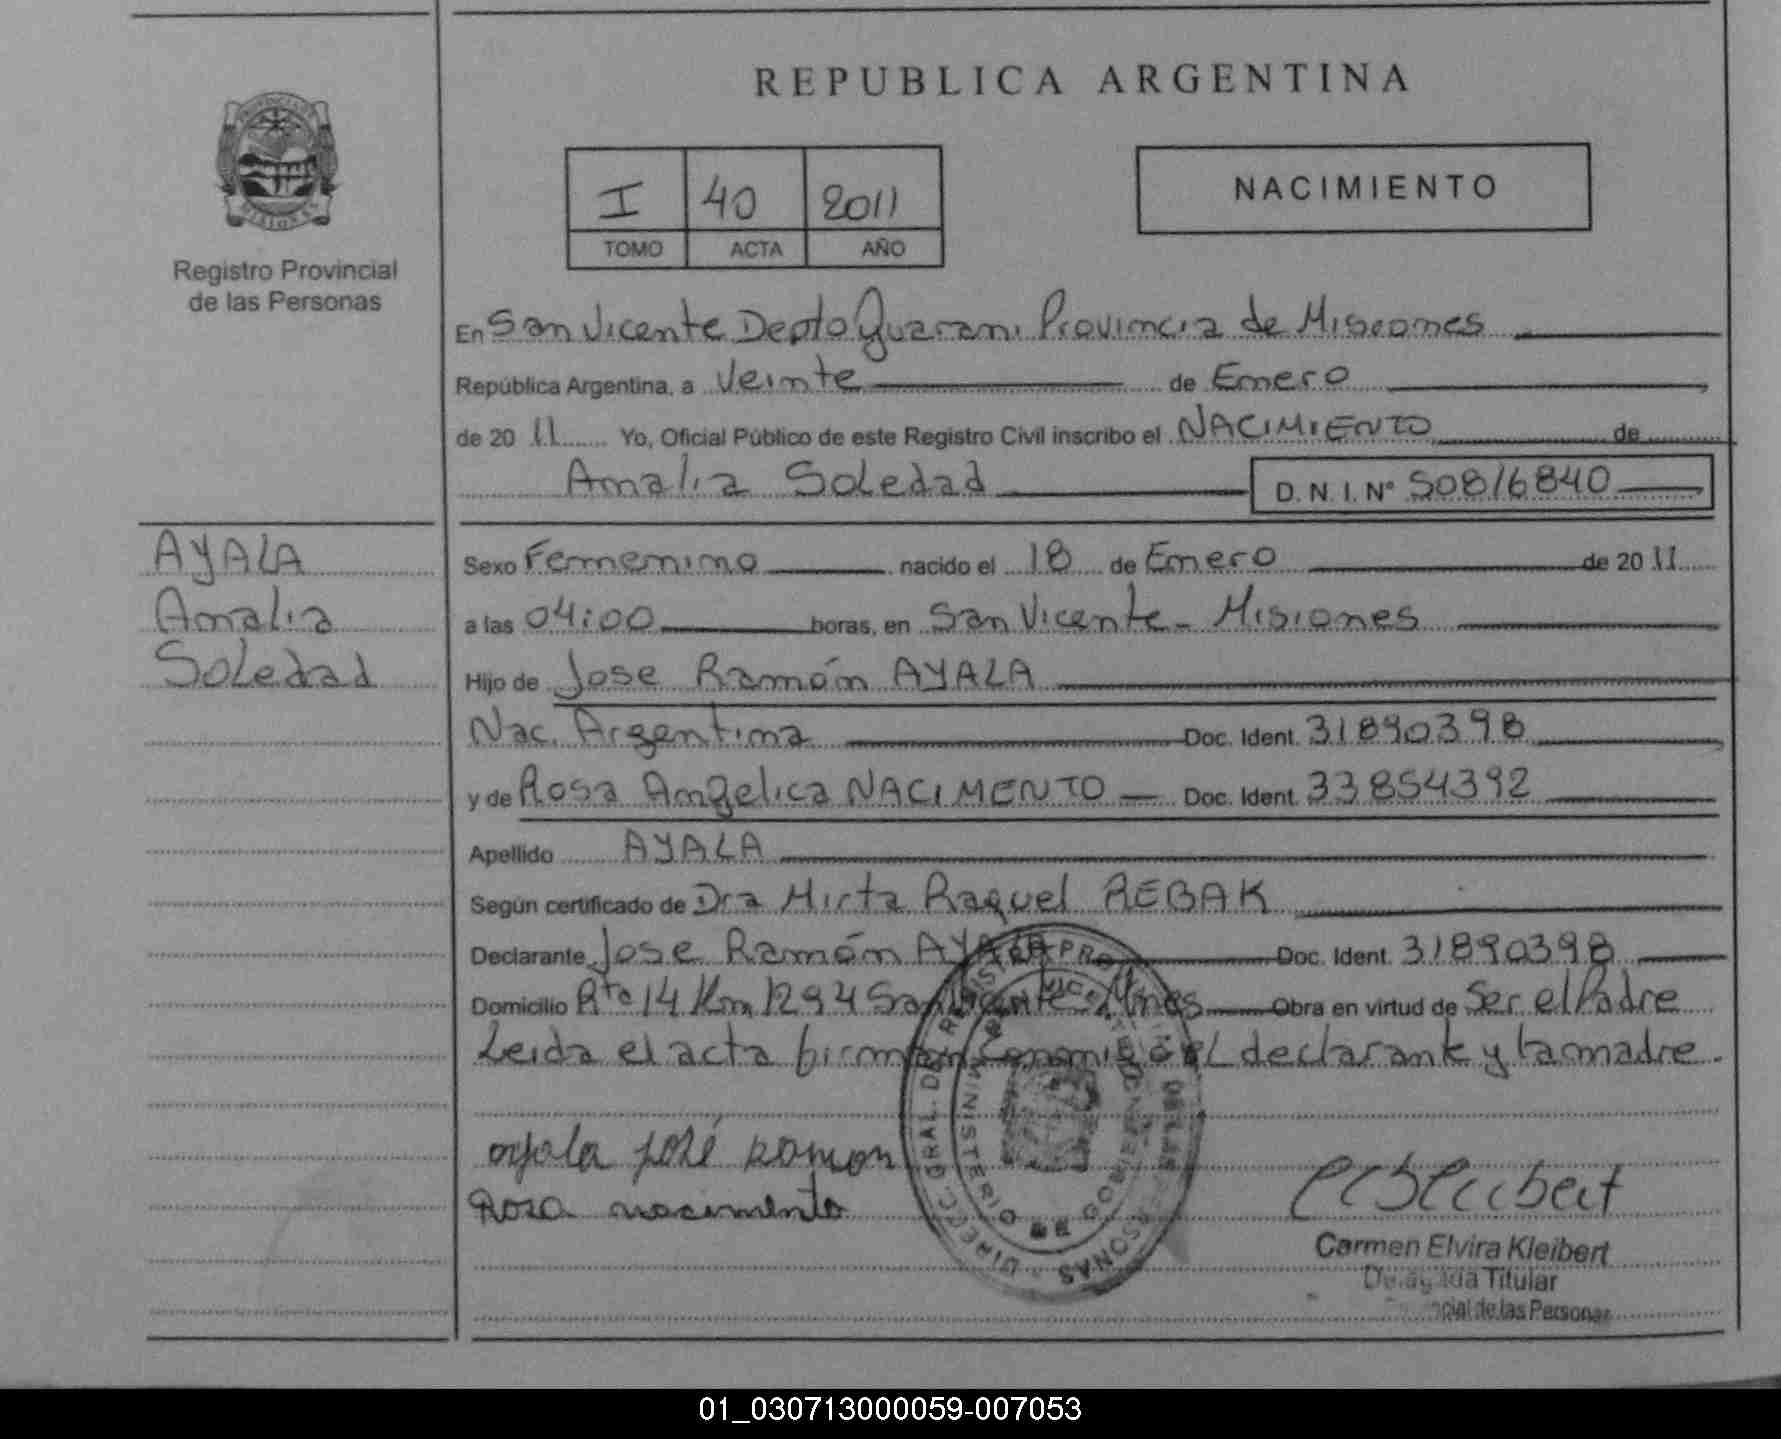 REPUBLICA ARGENTINA
I 40 2011
TOMO ACTA AÑO
NACIMIENTO
Registro Provincial
de las Personas
En San Vicente Depto Guarani Provincia de Misiones
República Argentina, a Veinte de Enero
de 20 11 Yo, Oficial Público de este Registro Civil inscribo el NACIMIENTO de
Amalia Soledad D. N. I. Nº 50816840
AYALA
Amalia
Soledad
Sexo Femenino nacido el 18 de Enero de 20 11
a las 04:00 horas, en San Vicente - Misiones
Hijo de Jose Ramón AYALA
Nac. Argentina Doc. Ident. 31890398
y de Rosa Angelica NACIMENTO Doc. Ident. 33854392
Apellido AYALA
Según certificado de Dra Mirta Raquel REBAK
Declarante Jose Ramón AYALA Doc. Ident. 31890398
Domicilio Rta 14 Km 1294 San Vicente Mnes Obra en virtud de Ser el Padre
Leida el acta firman conmigo el declarante y la madre.
ayala josé ramon
Rosa nacimento
Carmen Elvira Kleibert
Delegada Titular
de las Personas
01_030713000059-007053